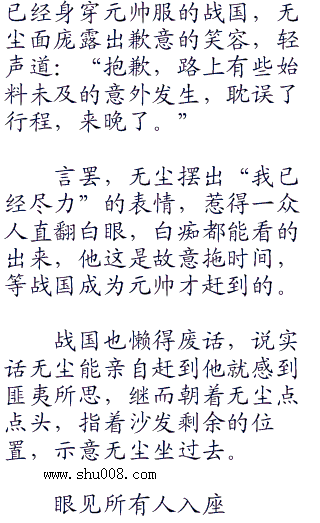 已经身穿元帅服的战国，无
尘面庞露出歉意的笑容，轻
声道：“抱歉，路上有些始
料未及的意外发生，耽误了
行程，来晚了。”
言罢，无尘摆出“我已
经尽力”的表情，惹得一众
人直翻白眼，白痴都能看的
出来，他这是故意拖时间，
等战国成为元帅才赶到的。
战国也懒得废话，说实
话无尘能亲自赶到他就感到
匪夷所思，继而朝着无尘点
点头，指着沙发剩余的位
置，示意无尘坐过去。
www.shu008.com
眼见所有人入座